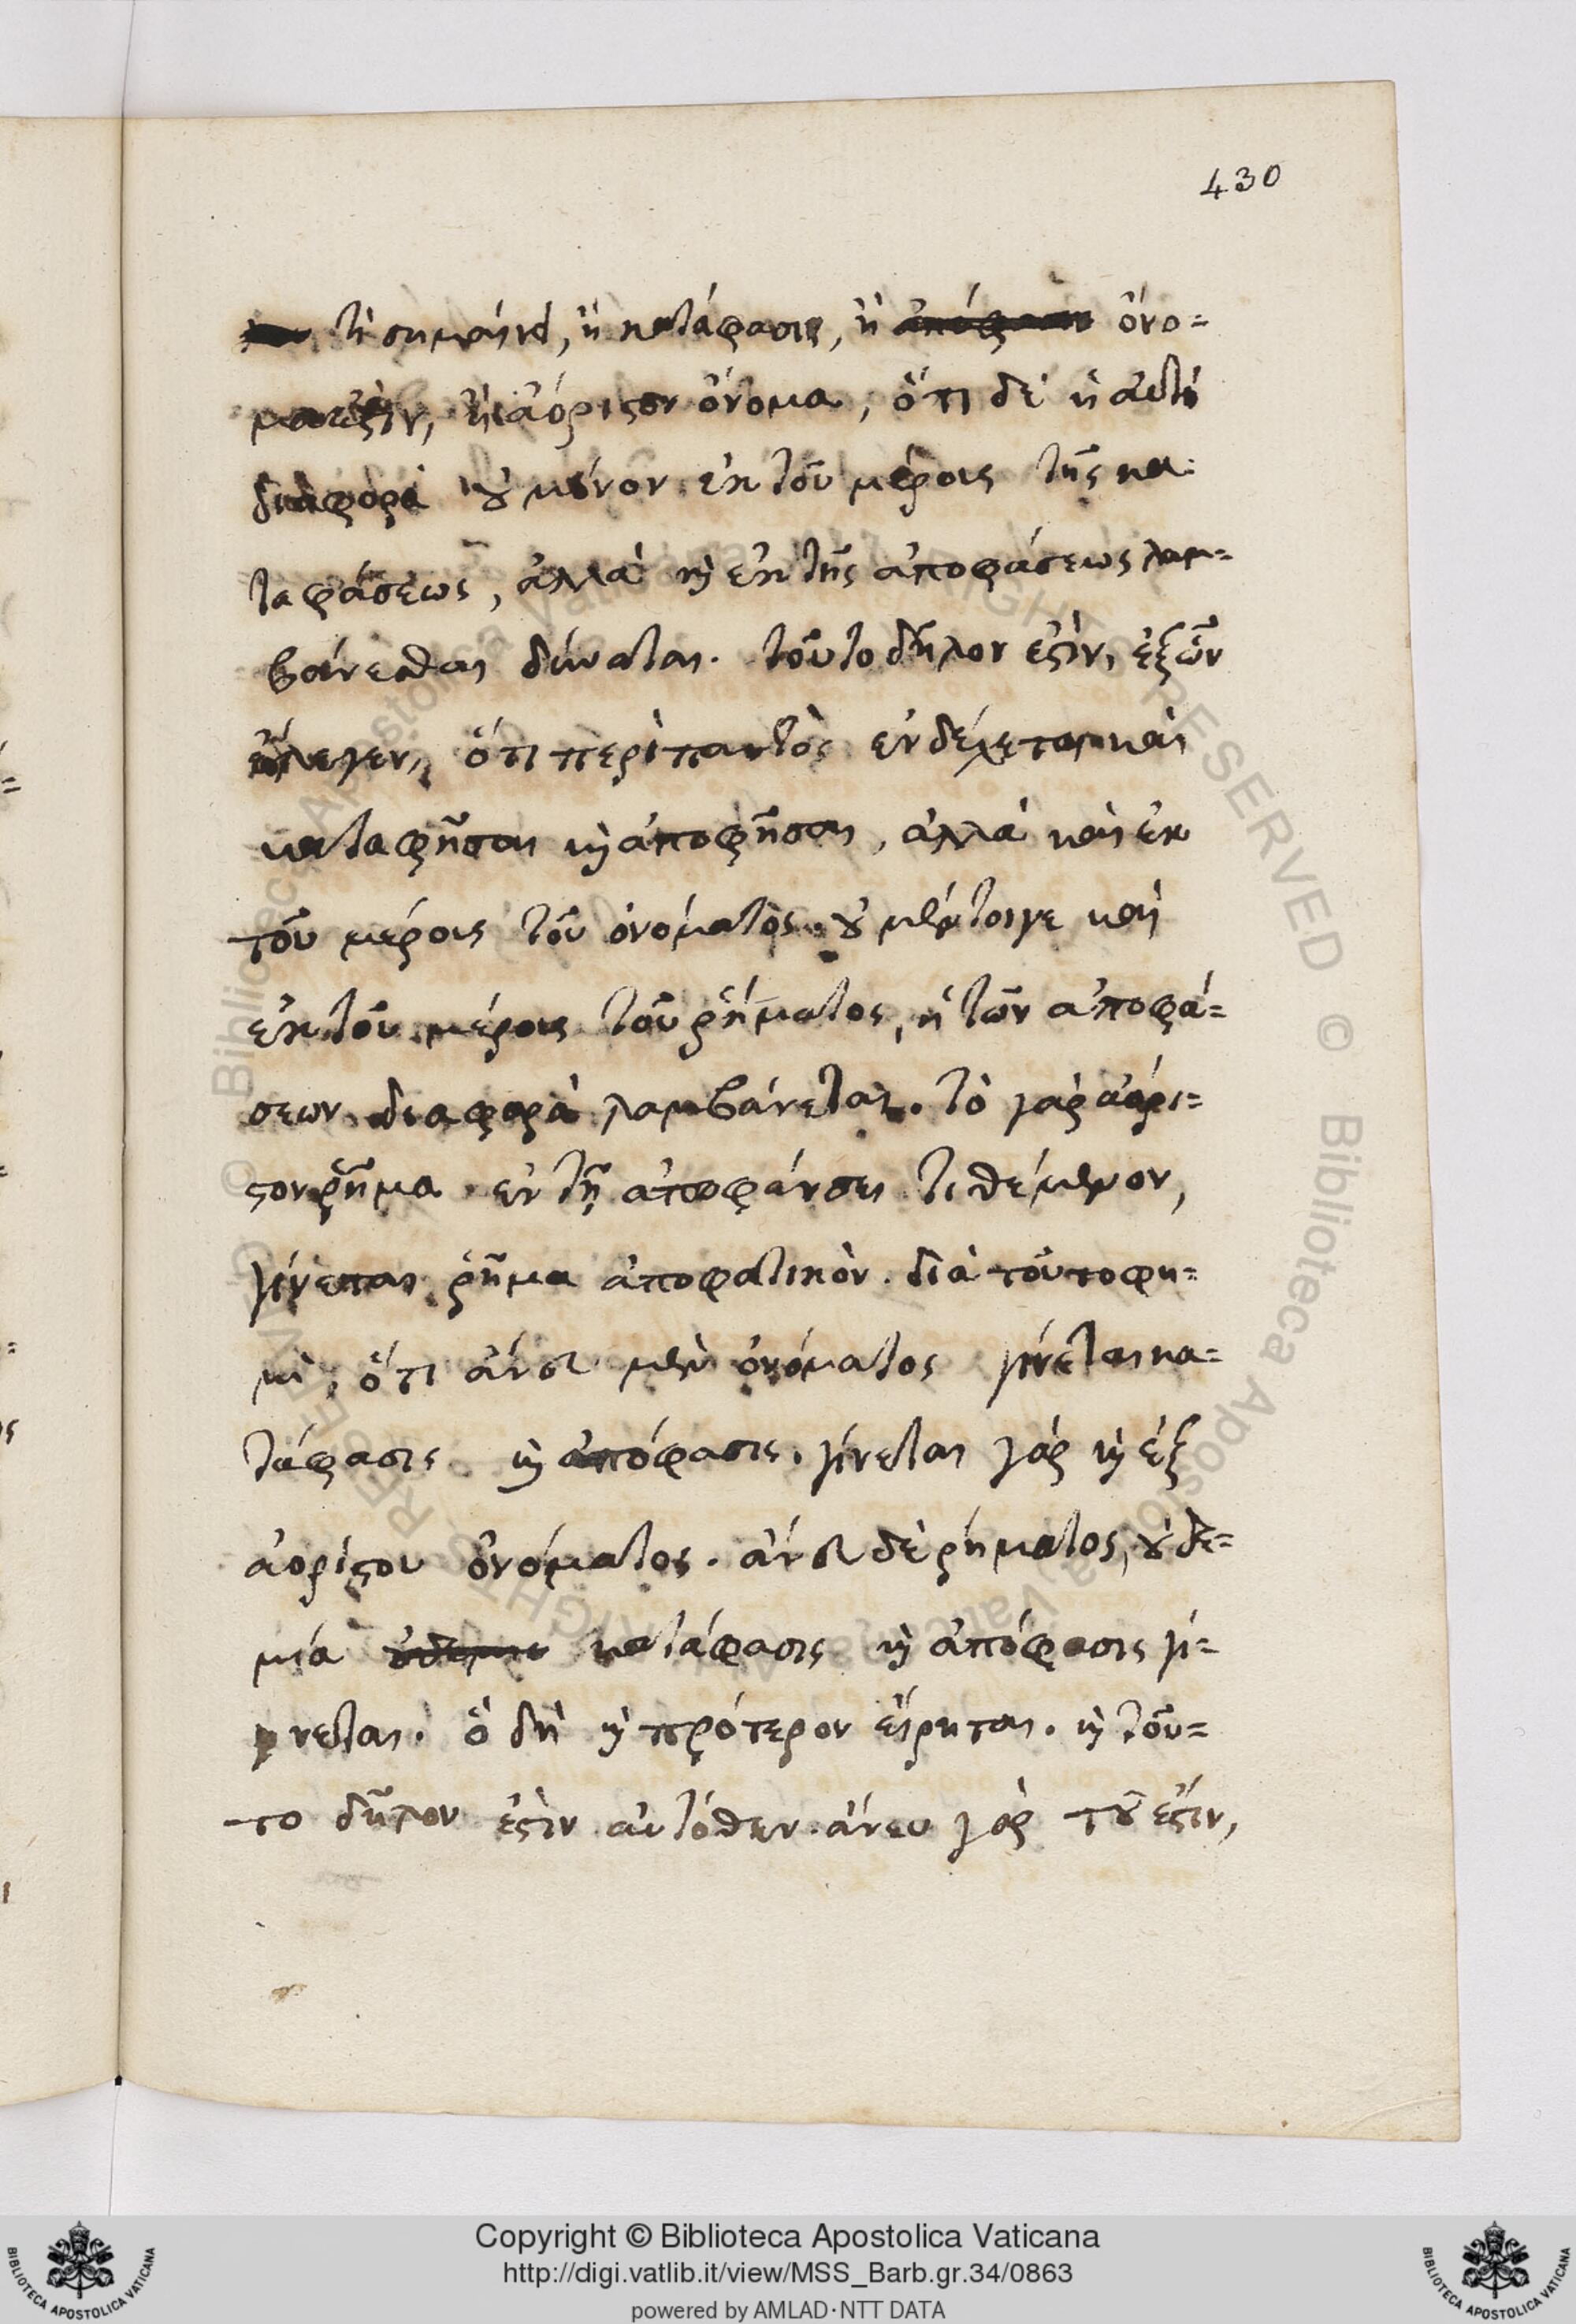 430
τὶ σημαίνει, ἢ κατάφασις, ἢ ὄνο=
μα ἐστιν, ἢ ἀόριστον ὄνομα, ὅτι δὲ ἡ αὐτὴ
διαφορὰ οὐ μόνον ἐκ τοῦ μέρους τῆς κα=
ταφάσεως, ἀλλὰ καὶ ἐκ τῆς ἀποφάσεως λαμ=
βάνεσθαι δύναται. τοῦτο δῆλον ἐστὶν, ἐξ ὧν
ἔλεγεν, ὅτι περὶ παντὸς ἐνδέχεται καὶ
καταφῆσαι καὶ ἀποφῆσαι, ἀλλὰ καὶ ἐκ
τοῦ μέρους τοῦ ὀνόματος. οὐ μέντοιγε καὶ
ἐκ τοῦ μέρους τοῦ ῥήματος, ἡ τῶν ἀποφά=
σεων διαφορὰ λαμβάνεται. τὸ γὰρ ἀόρι=
στον ῥῆμα ἐν τῇ ἀποφάνσει τιθέμενον,
γίνεται ῥῆμα ἀποφατικὸν. διὰ τοῦτο φη=
μὶ, ὅτι ἄνευ μὲν ὀνόματος γίνεται κα=
τάφασις καὶ ἀπόφασις. γίνεται γὰρ καὶ ἐξ
ἀορίστου ὀνόματος. ἄνευ δὲ ῥήματος, οὐδε=
μία κατάφασις καὶ ἀπόφασις γί=
νεται. ὃ δὴ καὶ πρότερον εἴρηται. καὶ τοῦ=
το δῆλον ἐστὶν αὐτόθεν. ἄνευ γὰρ τοῦ ἔστιν,
© Biblioteca Apostolica Vaticana, ALL RIGHTS RESERVED
Copyright © Biblioteca Apostolica Vaticana
http://digi.vatlib.it/view/MSS_Barb.gr.34/0863
powered by AMLAD·NTT DATA
BIBLIOTECA APOSTOLICA VATICANA
BIBLIOTECA APOSTOLICA VATICANA